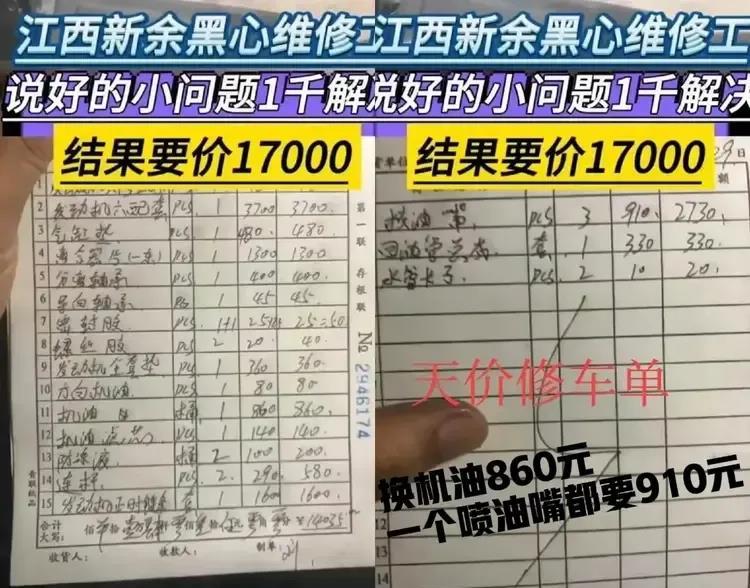 江西新余黑心维修工
说好的小问题1千解
结果要价17000
2 发动机六配套 pcs 1 3700 3700.
3 气缸垫 pcs. 1 480. 480
4 离合器片(一东) pcs 1 1300 1300
5 分离轴承 pcs 1 400 400.
6 导向轴承 Ps 1 45 45.
7 密封胶 pcs. 1+1
8 螺丝胶 pcs 2 20 40.
9 发动机全套垫 pcs 1 360 360.
10 方向机油 pcs 1 80 80
11 机油 桶 1 860 860.
12 机油滤芯 pcs 1 140 140.
13 防冻液 桶 2 100 200
14 连杆 pcs. 2. 290. 580.
15 发动机正时 套 1 1600 1600.
合计
大写:
收货人: 收款人: 制单:
青联纸品
第一联 存根联
No 2946174
江西新余黑心维修工
说好的小问题1千解决
结果要价17000
29日
pcs 3 910. 2730.
回油管总成 套. 1 330 330.
水管卡子 pcs. 2 10 20.
天价修车单
换机油860元
一个喷油嘴都要910元
11
12
13
14